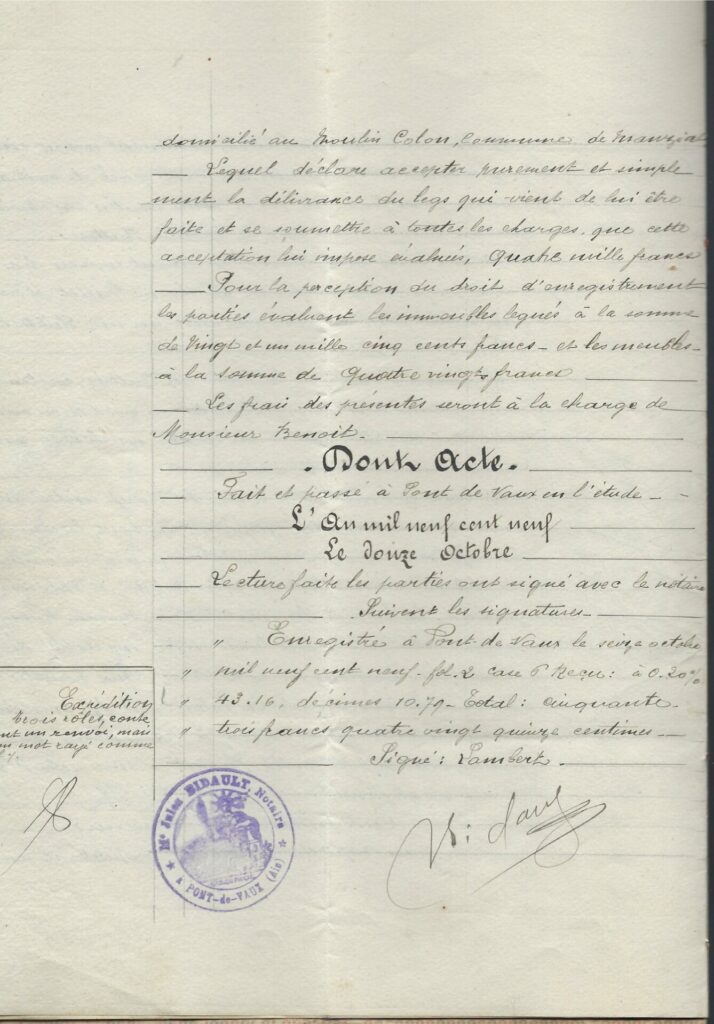 domicilié au Moulin Colon, Commune de Marsonnas
Lequel déclare accepter purement et simple
ment la délivrance du legs qui vient de lui être
faite et se soumettre à toutes les charges, que cette
acceptation lui impose évaluées, quatre mille francs
Pour la perception du droit d'enregistrement
les parties évaluent les immeubles légués à la somme
de vingt et un mille cinq cents francs - et les meubles -
à la somme de quatre vingts francs
Les frais des présentes seront à la charge de
Monsieur Benoit -
- Dont Acte -
Fait et passé à Pont de Vaux en l'étude -
L'An mil neuf cent neuf
Le douze Octobre
Lecture faite les parties ont signé avec le notaire
Suivent les signatures -
" Enregistré à Pont de Vaux le seize octobre
" mil neuf cent neuf. fol. 2 case 6 Reçu : à 0.20%
" 43.16, décimes 10.79 - Total : cinquante -
" trois francs quatre vingt quinze centimes -
Signé : Lambert -
Expédition
trois rôles, conte
nt un renvoi, mais
un mot rayé comme
Me Jules BIDAULT, Notaire
A PONT-de-VAUX (Ain)